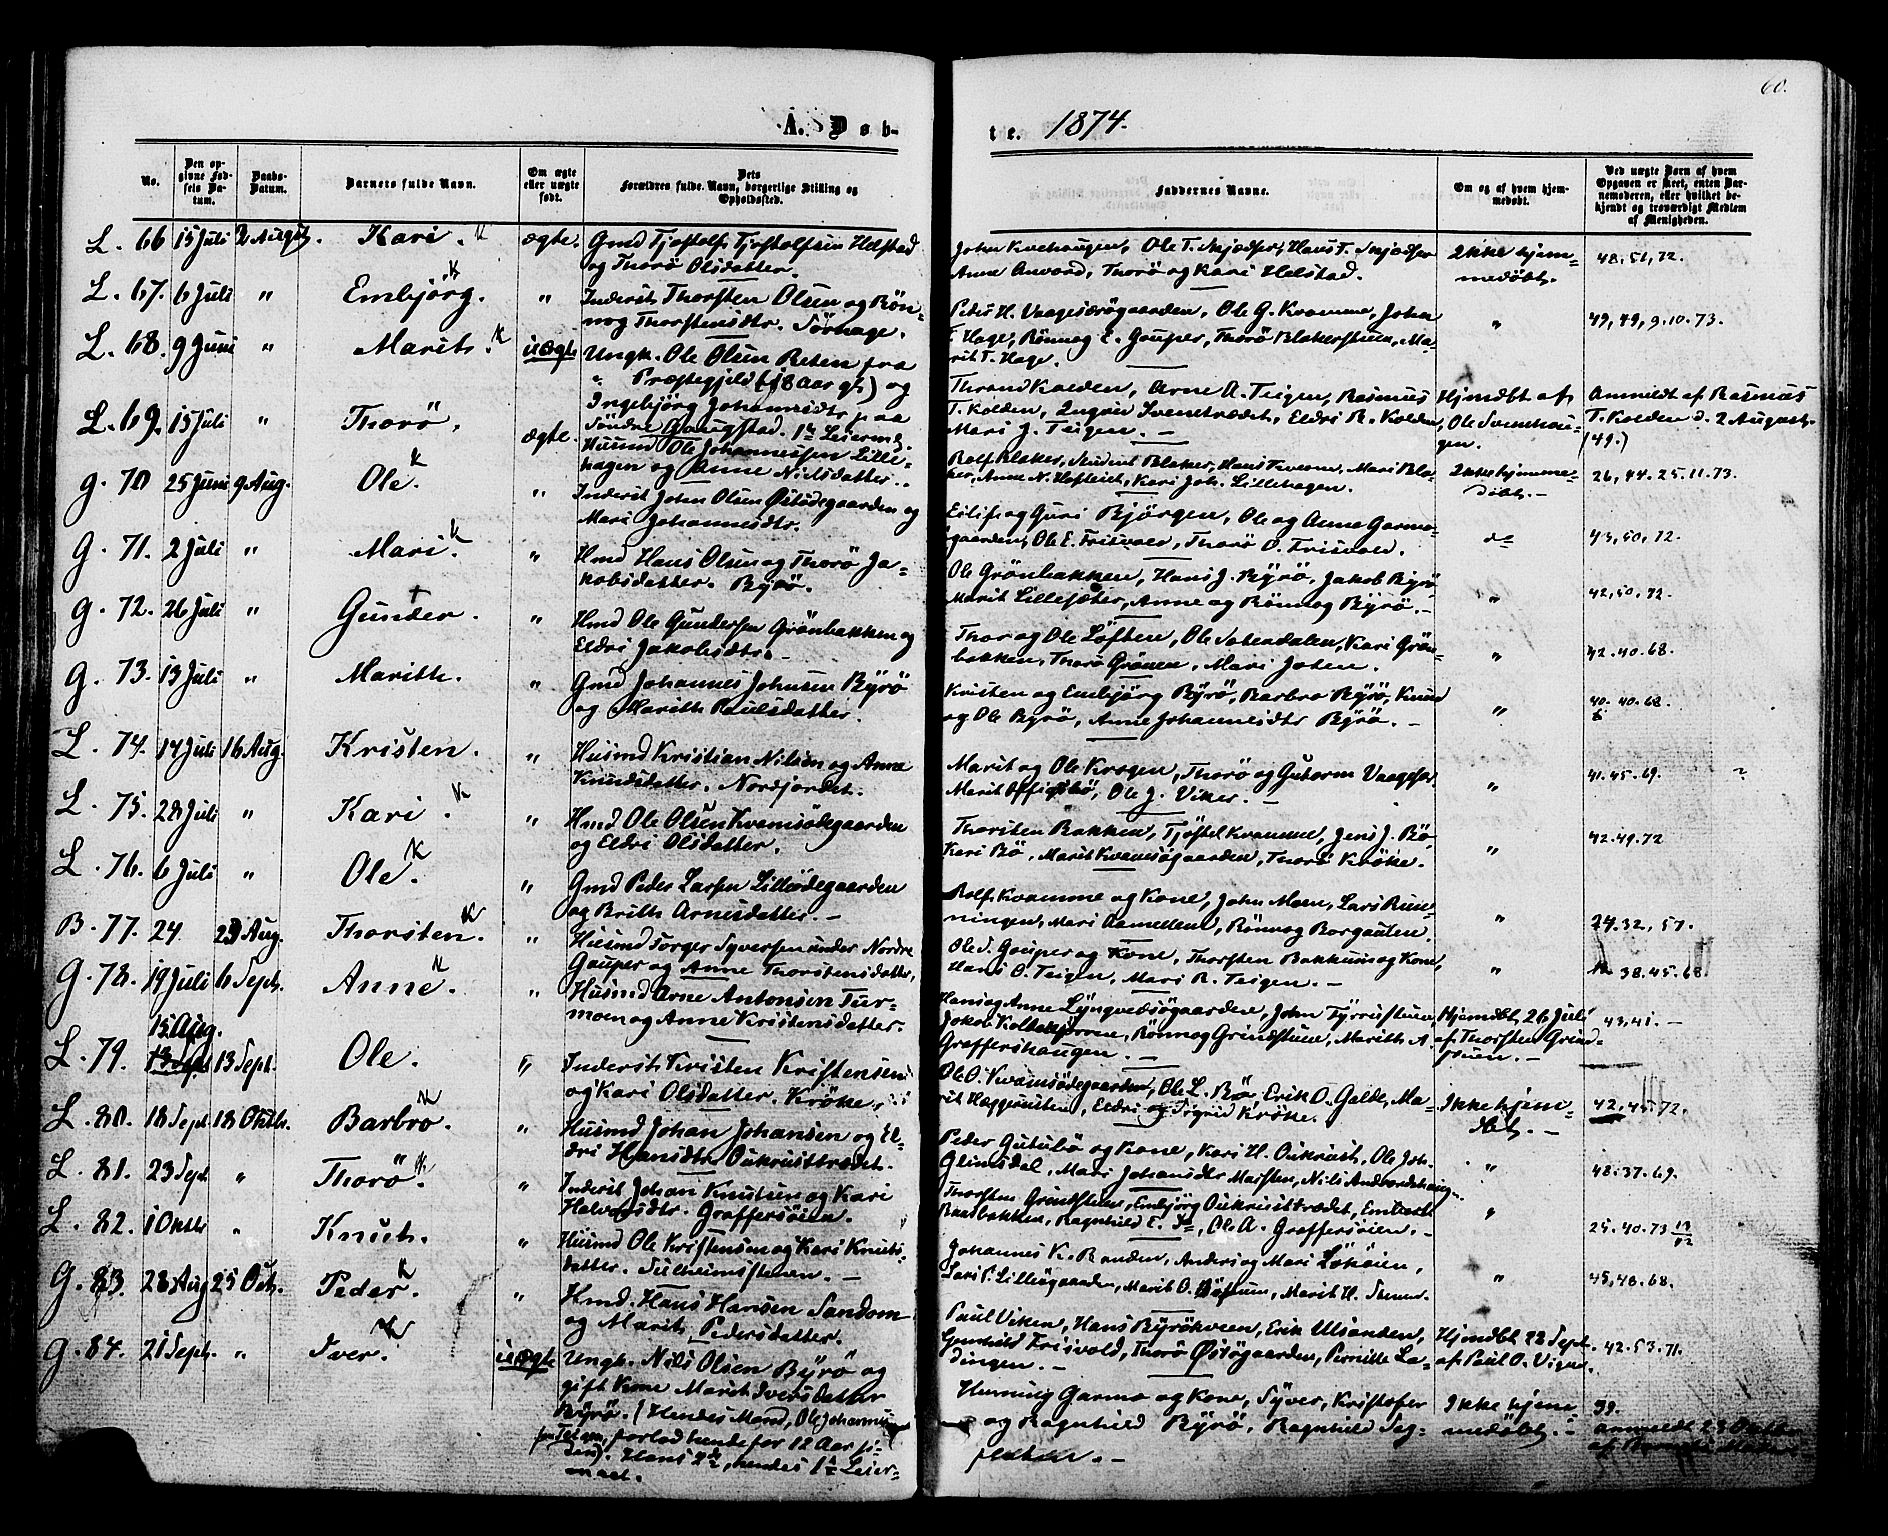 60.
A. Døb-
te. 1874.
No.
Den op-
givne Fød-
sels Da-
tum.
Daabs-
Datum.
Barnets fulde Navn.
Om ægte
eller uægte
født.
Dets
Forældres fulde Navn, borgerlige Stilling og
Opholdssted.
Faddernes Navne.
Om og af hvem hjem-
medøbt.
Ved uægte Børn af hvem
Opgaven er skeet, enten Bar-
nemoderen, eller hvilket be-
kjendt og troværdigt Medlem
af Menigheden.
L. 66 15 Juli 2 August. Kari. K ægte. Gmd Tjostolf Tjostolfsen Helstad
og Thorø Olsdatter.
John Kvehaugen, Ole T. Skjædser, Hans T. Skjædser
Anne Anvord, Thorø og Kari Helstad.
Ikke hjem-
medøbt.
48.51,72.
L. 67. 6 Juli " Embjörg. K " Inderst Thorsten Olsen og Rön-
nog Thorstensdtr. Sörhage.
Peder H. Vaagesørøgaarden, Ole G. Kvamme, John
T. Hage, Rønnog E. Gouper, Thorø Blakerstuen, Ma-
rit T. Hage.
"
49,49,9.10.73.
L. 68. 9 Juni " Marit. K uægte Ungk. Ole Olsen Reten fra
" Præstegjeld (18 Aar gl.) og
Ingebjörg Johannesdtr paa
Söndre Gaugstad. 1ste Leiermaal
Thrond Kolden, Arne A. Teigen, Rasmus
T. Kolden, Ingrid Svenstrædet, Eldri R. Kolden,
Mari J. Teigen. —
Hjmdbt af
Ole Svenhau-
gen.
Anmeldt af Rasmus
T. Kolden d. 2 August.
(49.)
L. 69. 15 Juli " Thorö. ægte. Huusmd Ole Johannessen Lille-
hagen og Anne Nilsdatter.
Rolf Blaker, Student Blaker, Hans Tveom, Mari Bla-
ker, Anne N. Hofteiet, Kari Joh. Lillehagen.
Ikke hjemme-
døbt. —
26,44.25.11.73.
G. 70 25 Juni 9 Aug. Ole. K " Inderst John Olsen Østödegaarden og
Mari Johannesdtr.
Eilif og Guri Bjørgen, Ole og Anne Garmo-
øgaarden, Ole E. Frisvold, Thorø O. Frisvold.
do
43,50,72.
G. 71. 2 Juli " Mari. K " Hmd Hans Olsen og Thorö Ja-
kobsdatter. Byrö.
Ole Grønbakken, Hans J. Byrö, Jakob Byrö,
Marit Lillesæter, Anne og Rønnog Byrö. —
"
42,50.72.
G. 72. 26 Juli " Gunder. + " Hmd Ole Gundersen Grönbakken og
Eldri Jakobsdtr. —
Thor og Ole Løften, Ole Sotendalen, Kari Grøn-
bakken, Thorø Grönen, Mari Joten.
"
42.40.68.
G. 73. 13 Juli " Marith. " Gmd Johannes Johnsen Byrö
og Marith Paulsdatter.
Kristen og Embjörg Byrö, Barbro Byrö, Knud
og Ole Byrö, Anne Johannesdtr Byrö. —
"
40. 40.68.
L. 74. 14 Juli 16 Aug. Kristen. " Husmd Kristian Nilsen og Anne
Knudsdatter. Nordjordet.
Marit og Ole Krogen, Thorø og Gutorm Vaagesar
Marit Offigsbö, Ole J. Viker. —
"
41.45.69.
L. 75. 28 Juli " Kari. K " Hmd Ole Olsen Kvamsödegaarden
og Eldri Olsdatter.
Thorsten Bakken, Tjøstel Kvamme, Jens J. Bö
Kari Bö, Marit Kvamsøgaarden, Thorø Kröke.
"
42.49.72
L. 76. 6 Juli " Ole. K " Gmd Peder Larsen Lilleödegaarden
og Brith Arnesdatter. —
Rolf Kvamme og Kone, John Moen, Lars Run-
ningen, Mari Aamellem, Rønnog Borgauten.
"
24.32,57.
B. 77. 24. 23 Aug. Thorsten. K " Husmd Torger Syversen under Nordre
Gauper og Anne Thorstensdatter,
Ole S. Gouper og Kone, Thorsten Bakkum og Kone,
Hans O. Teigen, Mari R. Teigen. —
"
38.45.68.
G. 78. 19 Juli 6 Sept. Anne. K " Husmd Arne Antonsen Fur-
moen og Anne Kristensdatter.
Hans og Anne Lyngvedsøgaarden, John Tyrristuen,
Jakob Kolbekjernn, Rønnog Grindstuen, Marith A.
Graffershaugen. —
Hjmdbt. 26 Juli
af Thorsten Grind-
stuen. —
43,41. —
L. 79. 15 Aug. 13 Sept. Ole. " Inderst Kristen Kristensen
og Kari Olsdatter. Kröke.
Ole O. Kvamsødegaarden, Ole L. Bö, Erik O. Galde, Ma-
rit Hæggerusten, Eldri og Sigrid Kröke.
Ikke hjem-
dbt. —
42,45.72.
L. 80. 18 Sept. 18 Oktbr. Barbro. K " Husmd Johan Johansen og El-
dri Hansdtr Oukrusttrædet.
Peder Gutubö og Kone, Kari H. Oukrust, Ole Joh.
Glimsdal, Mari Johansdtr Marsten, Nils Andvordshaug.
"
48.37.69.
L. 81. 23 Sept. " Thorö. K " Inderst Johan Knutsen og Kari
Halvorsdtr. Graffersøien.
Thorsten Grindstuen, Embjörg Oukrusttrædet, Embret
Baarbakken, Ragnhild E. do, Ole A. Graffersøien. —
"
25.40.73 19/12
L. 82. 1 Oktbr " Knut. " Husmd Ole Kristensen og Kari Knuts-
datter. Sulheimsstuen. —
Johannes K. Randen, Anders og Mari Løkøien,
Lars P. Lilleøgaarden, Marit O. Böstum, Marit H. Stuen.
"
45,48.68.
G. 83. 28 Aug 25 Okt. Peder. K " Hmd. Hans Hansen Sandom
og Marit Pedersdatter.
Paul Viken, Hans Byrökveen, Erik Ulsanden,
Gunhild Frisvold, Thorø Østøgaarden, Pernille La-
dingen. —
Hjmdbt 22 Sept.
af Paul O. Vigen
42.53.71.
G. 84. 21 Sept. " Iver. K uægte Ungk. Nils Olsen Byrö og
gift Kone Marit Iversdatter
Byrö. (Hendes Mand, Ole Johannes-
sen, forlod hende for 12 Aar si-
den). Hans 2de, hendes 1ste Leier-
maal.
Henning Garmo og Kone, Syver, Kristofer
og Ragnhild Byrö, Ragnhild Seg-
Ikke hjem-
medøbt. —
39.
anmeldt 23 Oktbr
af Barnets Moder